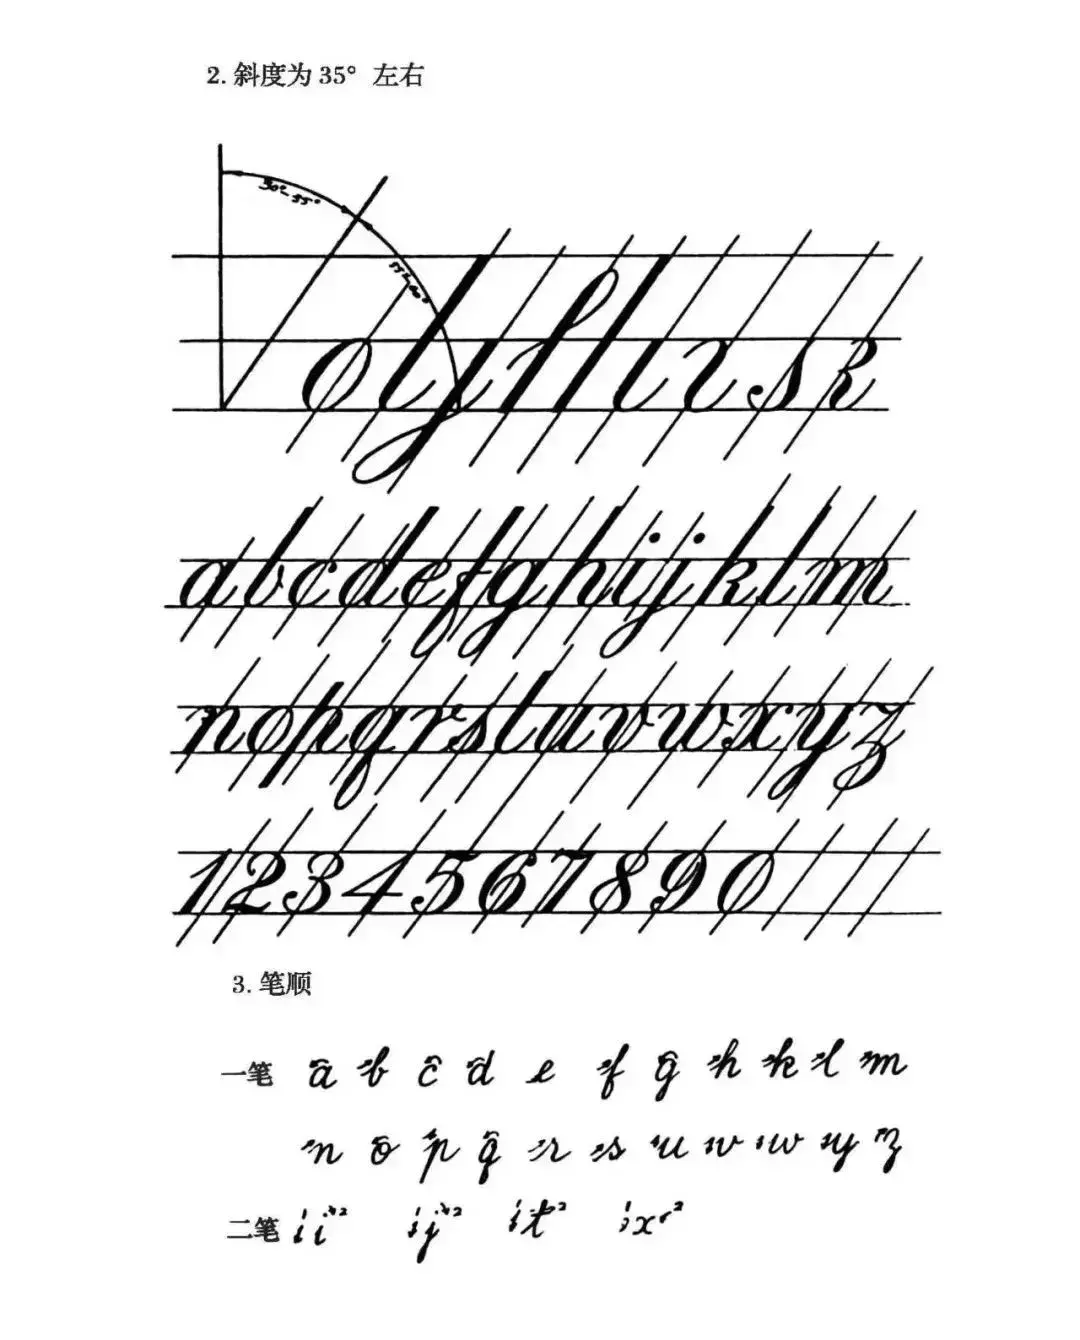 2. 斜度为 35° 左右
30°-35°
55°-60°
abcdefghijklm
nopqrstuvwxyz
1234567890
3. 笔顺
一笔 a b c d e f g h k l m
n o p q r s u v w y z
二笔 i j t x